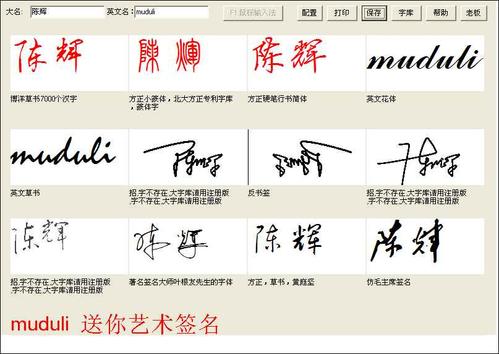 大名: 陈辉 英文名: muduli F1 鼠标输入法 配置 打印 保存 字库 帮助 老板
陈辉 陳輝 陈辉 muduli
博洋草书7000个汉字 方正小篆体，北大方正专利字库，篆体字 方正硬笔行书简体 英文花体
muduli
英文草书 招,字不存在,大字库请用注册版 反书签 招,字不存在,大字库请用注册版
,字不存在,大字库请用注册版 ,字不存在,大字库请用注册版
陈辉 陈辉 陈辉 陈辉
招,字不存在,大字库请用注册版 著名签名大师叶根友先生的字体 方正，草书，黄庭坚 仿毛主席签名
,字不存在,大字库请用注册版
muduli 送你艺术签名